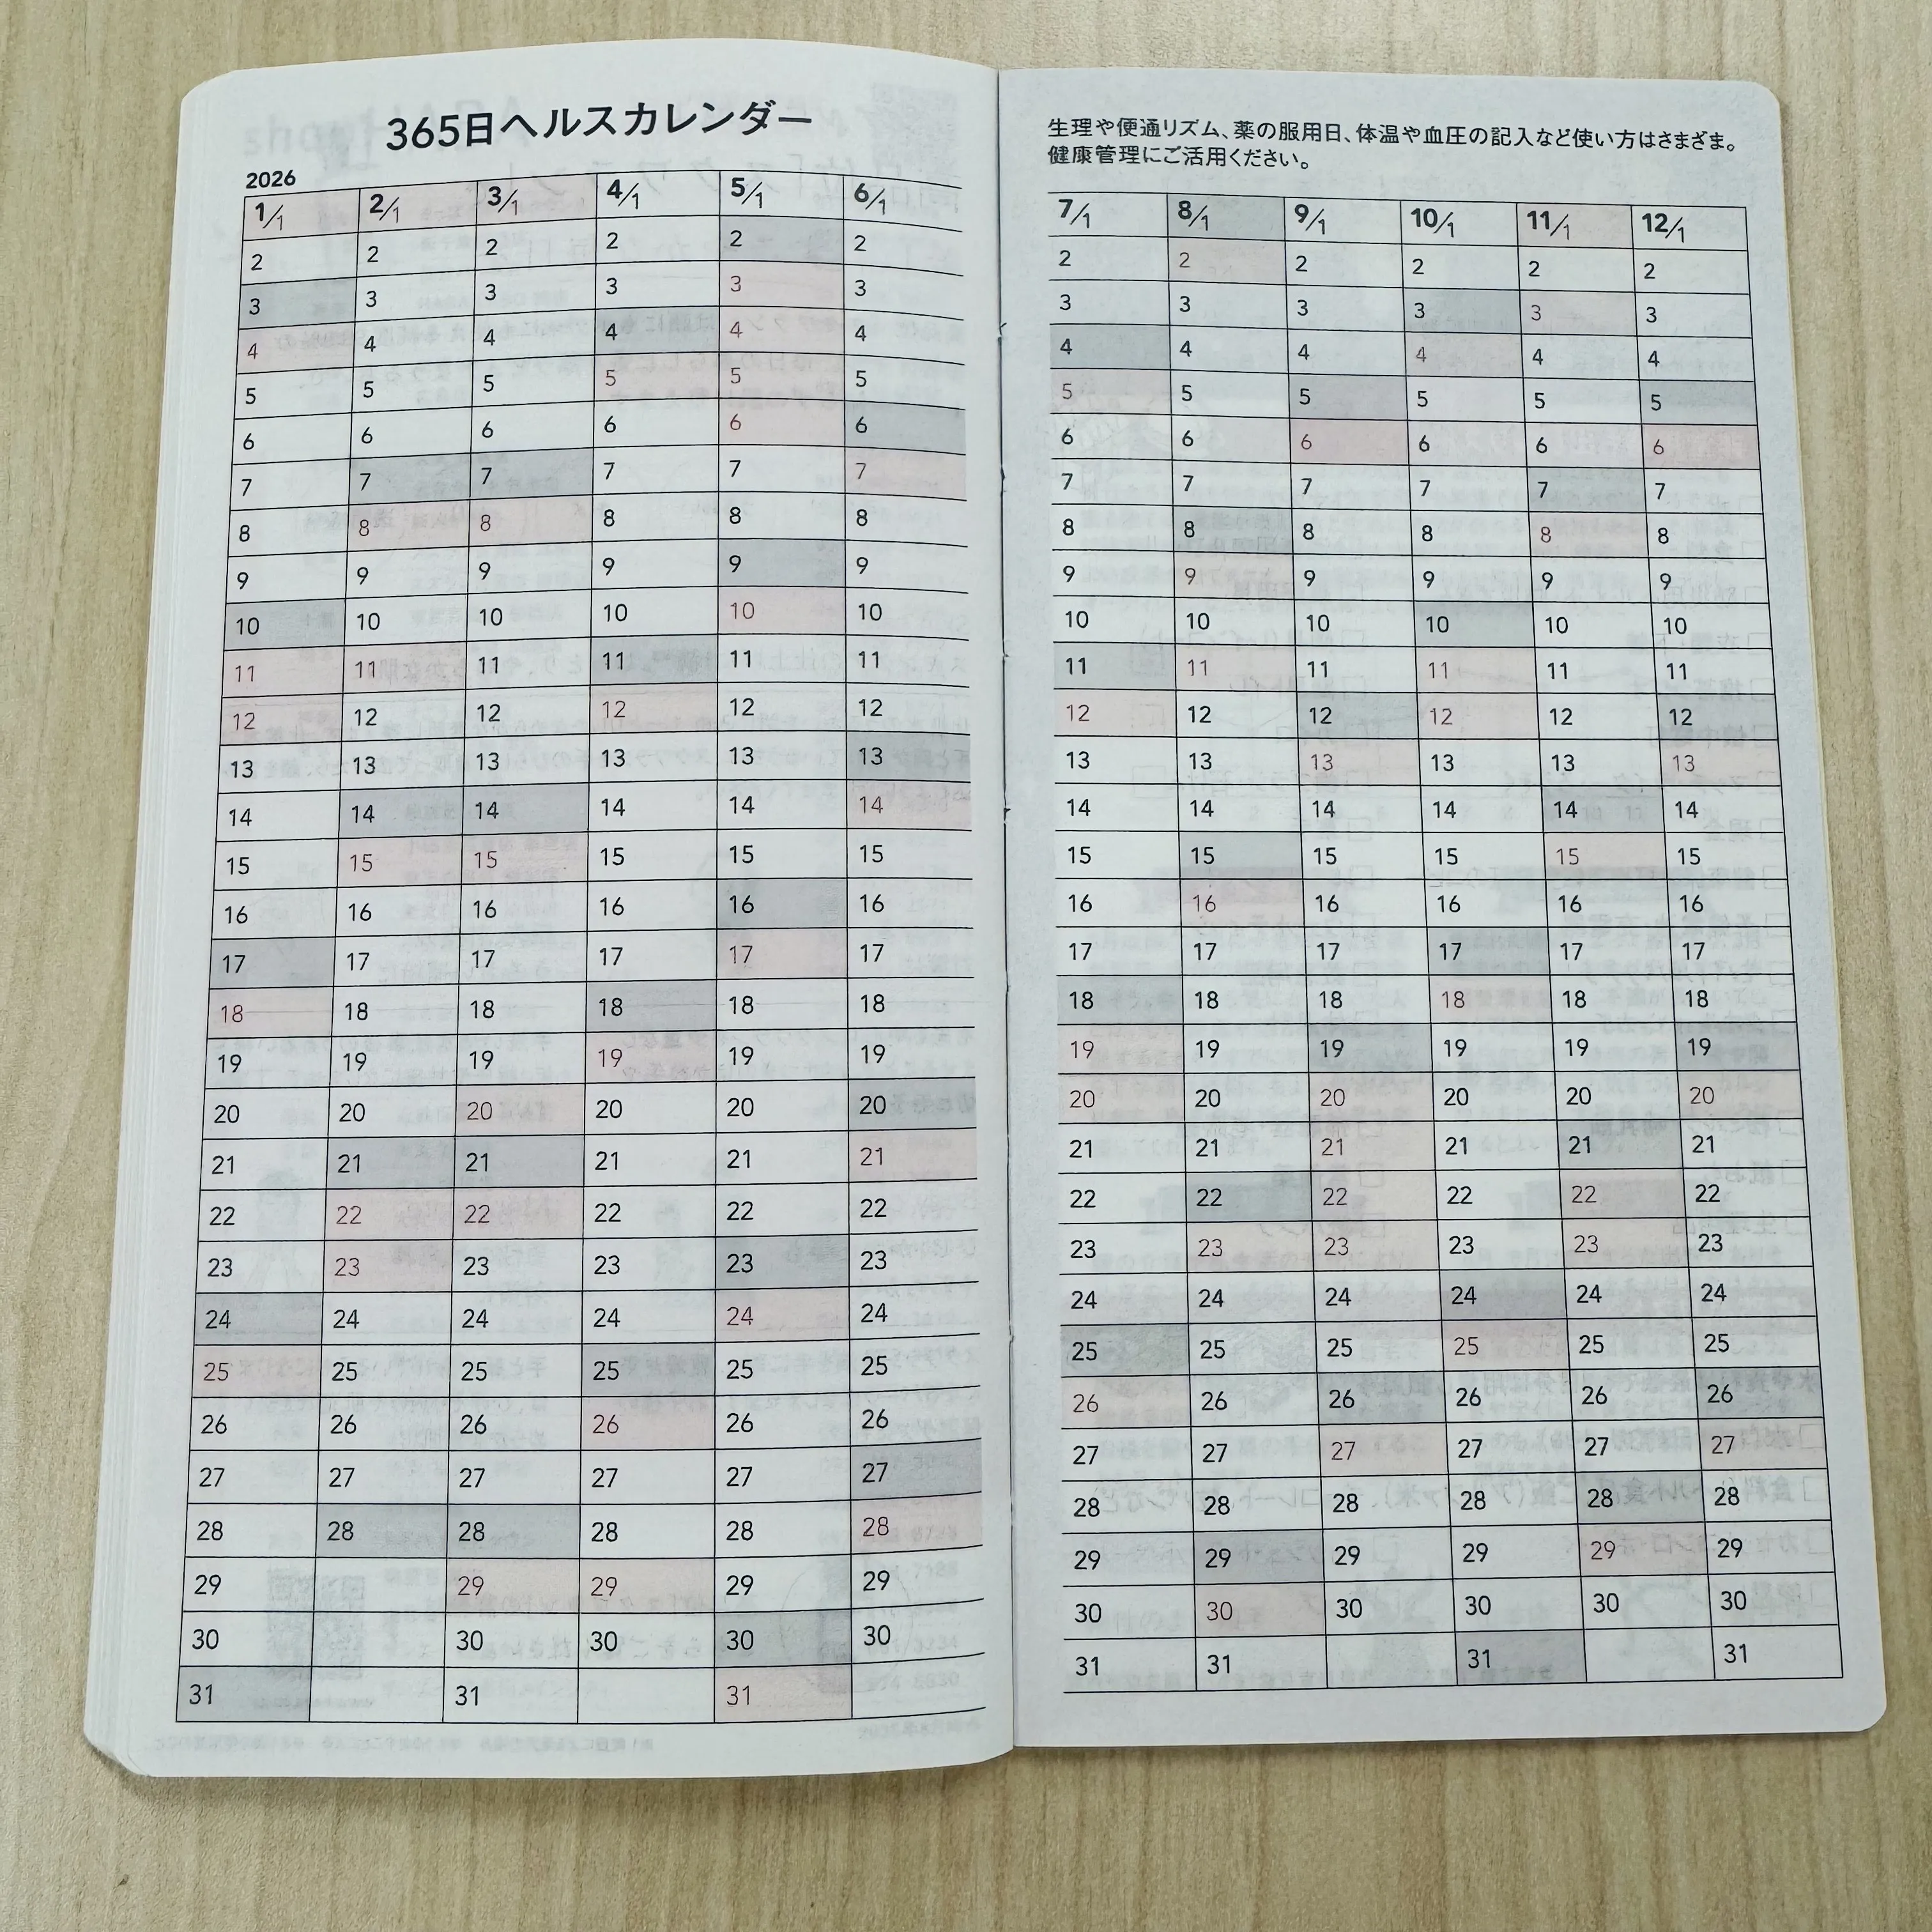 365日ヘルスカレンダー
2026
1/1 2/1 3/1 4/1 5/1 6/1
2 2 2 2 2 2
3 3 3 3 3 3
4 4 4 4 4 4
5 5 5 5 5 5
6 6 6 6 6 6
7 7 7 7 7 7
8 8 8 8 8 8
9 9 9 9 9 9
10 10 10 10 10 10
11 11 11 11 11 11
12 12 12 12 12 12
13 13 13 13 13 13
14 14 14 14 14 14
15 15 15 15 15 15
16 16 16 16 16 16
17 17 17 17 17 17
18 18 18 18 18 18
19 19 19 19 19 19
20 20 20 20 20 20
21 21 21 21 21 21
22 22 22 22 22 22
23 23 23 23 23 23
24 24 24 24 24 24
25 25 25 25 25 25
26 26 26 26 26 26
27 27 27 27 27 27
28 28 28 28 28 28
29 29 29 29 29
30 30 30 30 30
31 31 31
生理や便通リズム、薬の服用日、体温や血圧の記入など使い方はさまざま。
健康管理にご活用ください。
7/1 8/1 9/1 10/1 11/1 12/1
2 2 2 2 2 2
3 3 3 3 3 3
4 4 4 4 4 4
5 5 5 5 5 5
6 6 6 6 6 6
7 7 7 7 7 7
8 8 8 8 8 8
9 9 9 9 9 9
10 10 10 10 10 10
11 11 11 11 11 11
12 12 12 12 12 12
13 13 13 13 13 13
14 14 14 14 14 14
15 15 15 15 15 15
16 16 16 16 16 16
17 17 17 17 17 17
18 18 18 18 18 18
19 19 19 19 19 19
20 20 20 20 20 20
21 21 21 21 21 21
22 22 22 22 22 22
23 23 23 23 23 23
24 24 24 24 24 24
25 25 25 25 25 25
26 26 26 26 26 26
27 27 27 27 27 27
28 28 28 28 28 28
29 29 29 29 29 29
30 30 30 30 30 30
31 31 31 31